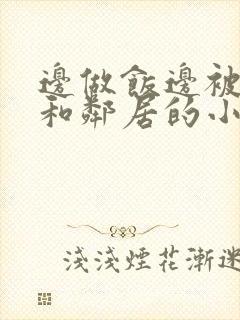 邊做飯邊被
和鄰居的小
淺淺煙花漸迷